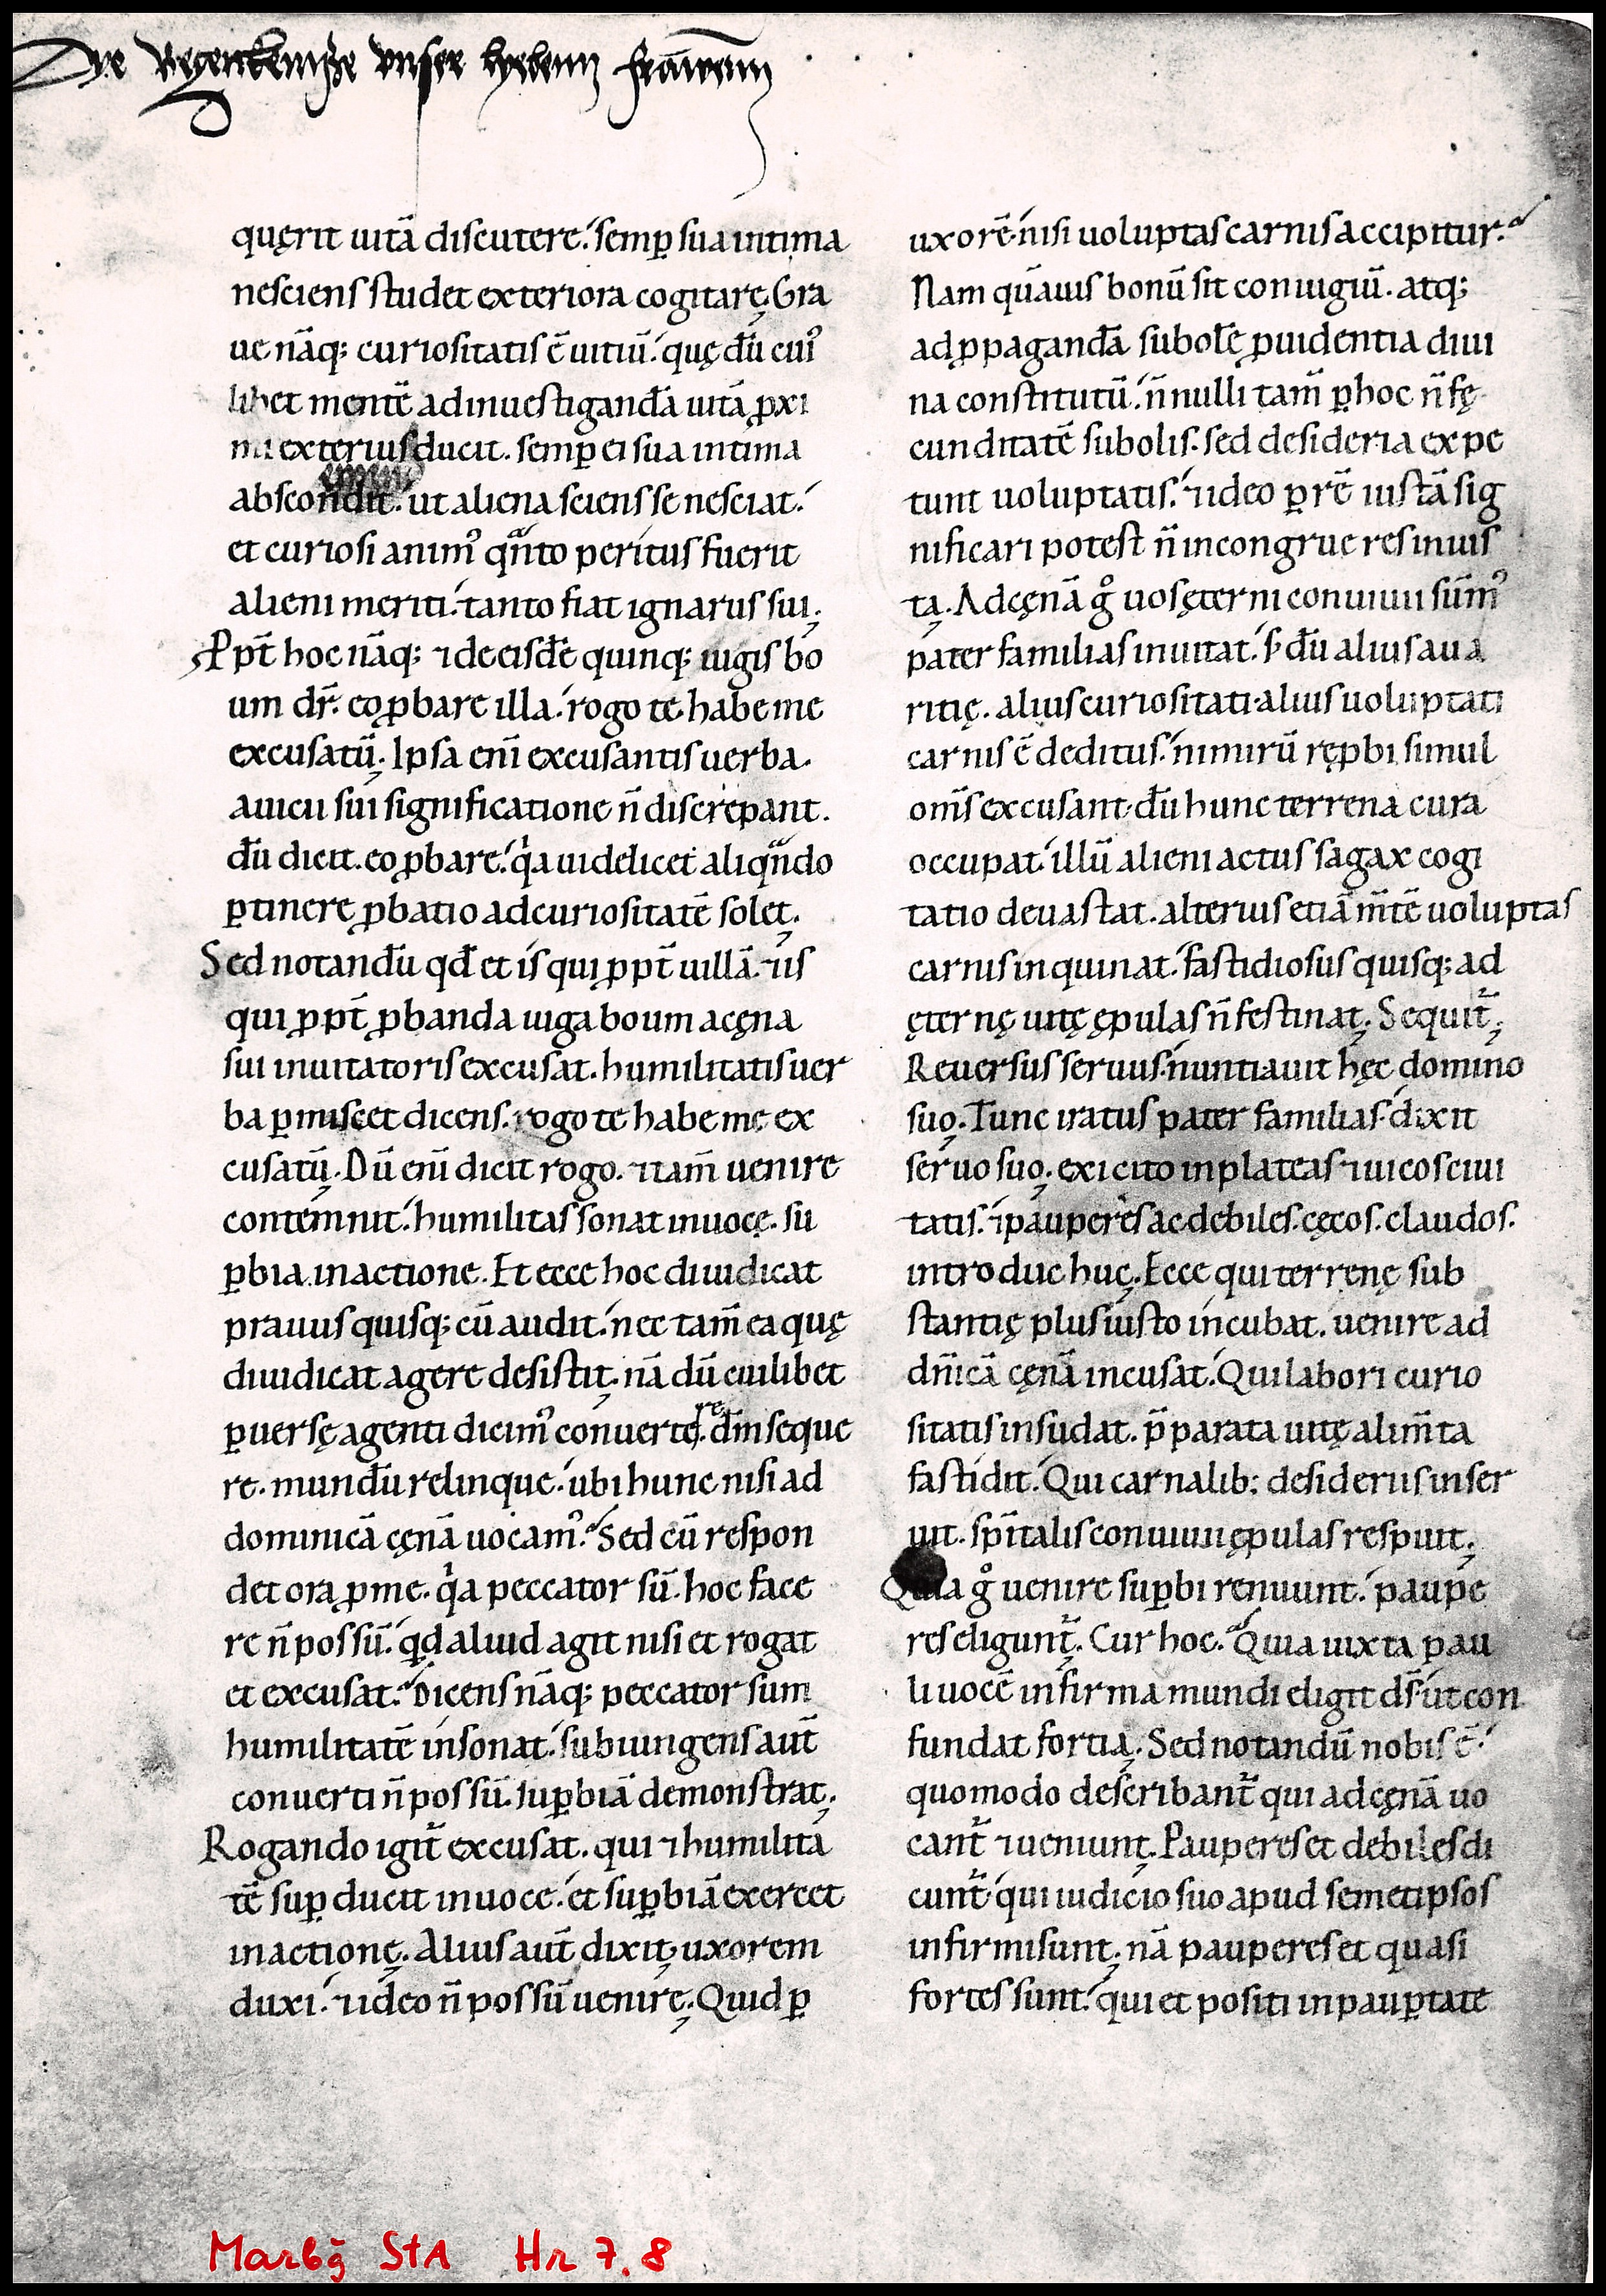 Dye Regentkenisse vnser lyebenn frauwenn
quęrit uitā discutere. semp̱ sua intima
nesciens studet exteriora cogitare. Gra
ue nāq; curiositatis ē uitiū. quę dū cuiꝰ
libet mentē ad inuestigandā uitā ꝓxi
mi exterius ducit. semꝑ ei sua intima
abscondit. ut aliena sciens se nesciat.
et curiosi animꝰ qͣnto peritus fuerit
alieni meriti. tanto fiat ignarus sui.
Ꝓpt̄ hoc nāq; ⁊ de eisdē quinq; iugis bo
um dr̄. eo ꝓbare illa. rogo te habe me
excusatū. Ipsa eni᷄ excusantis uerba.
a uicii sui significatione n̄ discrepant.
dū dicit. eo ꝓbare. qͥa uidelicet aliqͣndo
ꝑtinere ꝓbatio ad curiositatē solet.
Sed notandū qd̄ et is qui ꝓpt̄ uillā. ⁊ is
qui ꝓpt̄ ꝓbanda iuga boum a cęna
sui inuitatoris excusat. humilitatis uer
ba ꝑmiscet dicens. rogo te habe me ex
cusatū. Dū eni᷄ dicit rogo. ⁊ tam̄ uenire
contemnit. humilitas sonat in uoce. su
ꝑbia in actione. Et ecce hoc diiudicat
prauus quisq; cū audit. nec tam̄ ea quę
diiudicat agere desistit. nā dū cuilibet
ꝑuersę agenti dicimꝰ convertere. dm̄ seque
re. mundū relinque. ubi hunc nisi ad
dominicā cęnā uocamꝰ. Sed cū respon
det ora ꝓ me. qͥa peccator sū. hoc face
re n̄ possū. qͥd aliud agit nisi et rogat
et excusat. Dicens nāq; peccator sum
humilitatē insonat. subiungens aut̄
conuerti n̄ possū. suꝑbiā demonstrat.
Rogando igit̄ excusat. qui ⁊ humilita
tē suꝑducit in uoce. et suꝑbiā exercet
in actione. Alius aut̄ dixit. uxorem
duxi. ⁊ ideo n̄ possū uenire. Quid ꝑ
uxorē. nisi uoluptas carnis accipitur.
Nam quāuis bonū sit coniugiū. atq;
ad ꝓpagandā subolē ꝓuidentia diui
na constitutū. n̄nulli tam̄ ꝑ hoc n̄ fę
cunditatē subolis. sed desideria expe
tunt uoluptatis. ⁊ ideo ꝑ rē iustā sig
nificari potest n̄ incongrue res inius
ta. Ad cęnā gͦ uos ęterni conuiuii sūmꝰ
pater familias inuitat. s; dū alius aua
ritię. alius curiositati. alius uoluptati
carnis ē deditus. nimirū reꝓbi simul
om̄s excusant. dū hunc terrena cura
occupat. illū alieni actus sagax cogi
tatio deuastat. alterius etiā m̄tē uoluptas
carnis inquinat. fastidiosus quisq; ad
ęternę uitę ępulas n̄ festinat. Sequit̄.
Reuersus seruus. nuntiauit hęc domino
suo. Tunc iratus pater familias. dixit
seruo suo. exi cito in plateas ⁊ uicos ciui
tatis. ⁊ pauperes ac debiles. cęcos. claudos.
introduc huc. Ecce qui terrenę sub
stantię plus iusto incubat. uenire ad
dn̄icā cęnā incusat. Qui labori curio
sitatis insudat. p̄parata uitę alim̄ta
fastidit. Qui carnalib; desideriis inser
uit. sp̄italis conuiuii ępulas respuit.
Quia gͦ uenire suꝑbi renuunt. pauꝑe
res eligunt̄. Cur hoc. Quia iuxta pau
li uocē infirma mundi eligit ds̄. ut con
fundat fortia. Sed notandū nobis ē.
quomodo describant̄ qui ad cęnā uo
cant̄ ⁊ ueniunt. Pauperes et debiles di
cunt̄ qui iudicio suo apud semetipsos
infirmi sunt. nā pauperes et quasi
fortes sunt. qui et positi in pauꝑtate
Marbg StA Hr 7,8